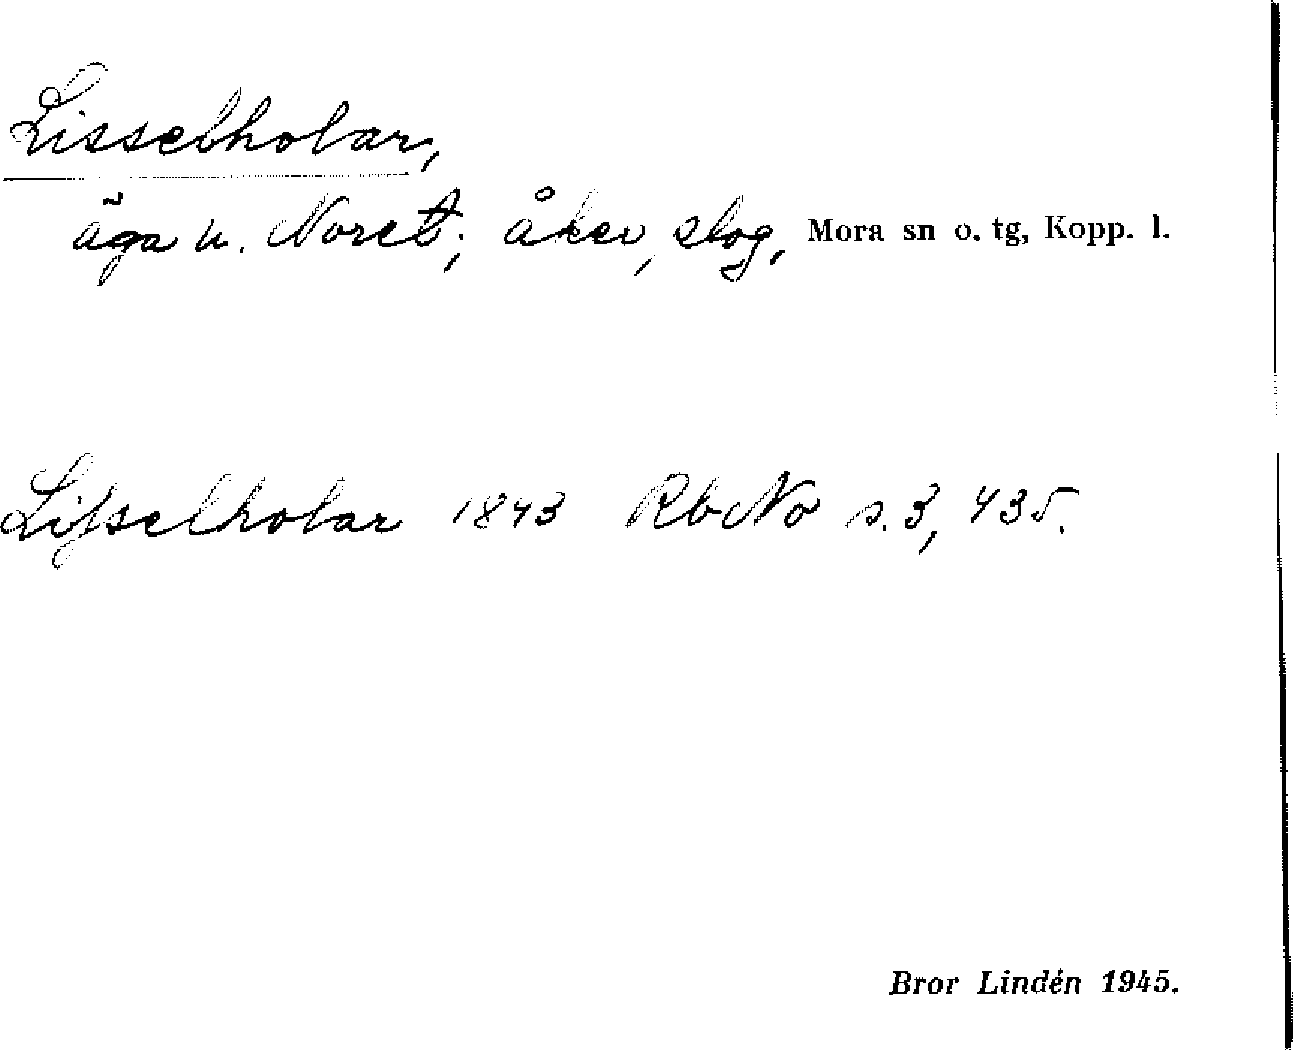 Lisselholar,
äga u. Noret; åker, slog, Mora sn o. tg, Kopp. l.
Lisselholar 1843 RbNo s. 3, 435.
Bror Lindén 1945.